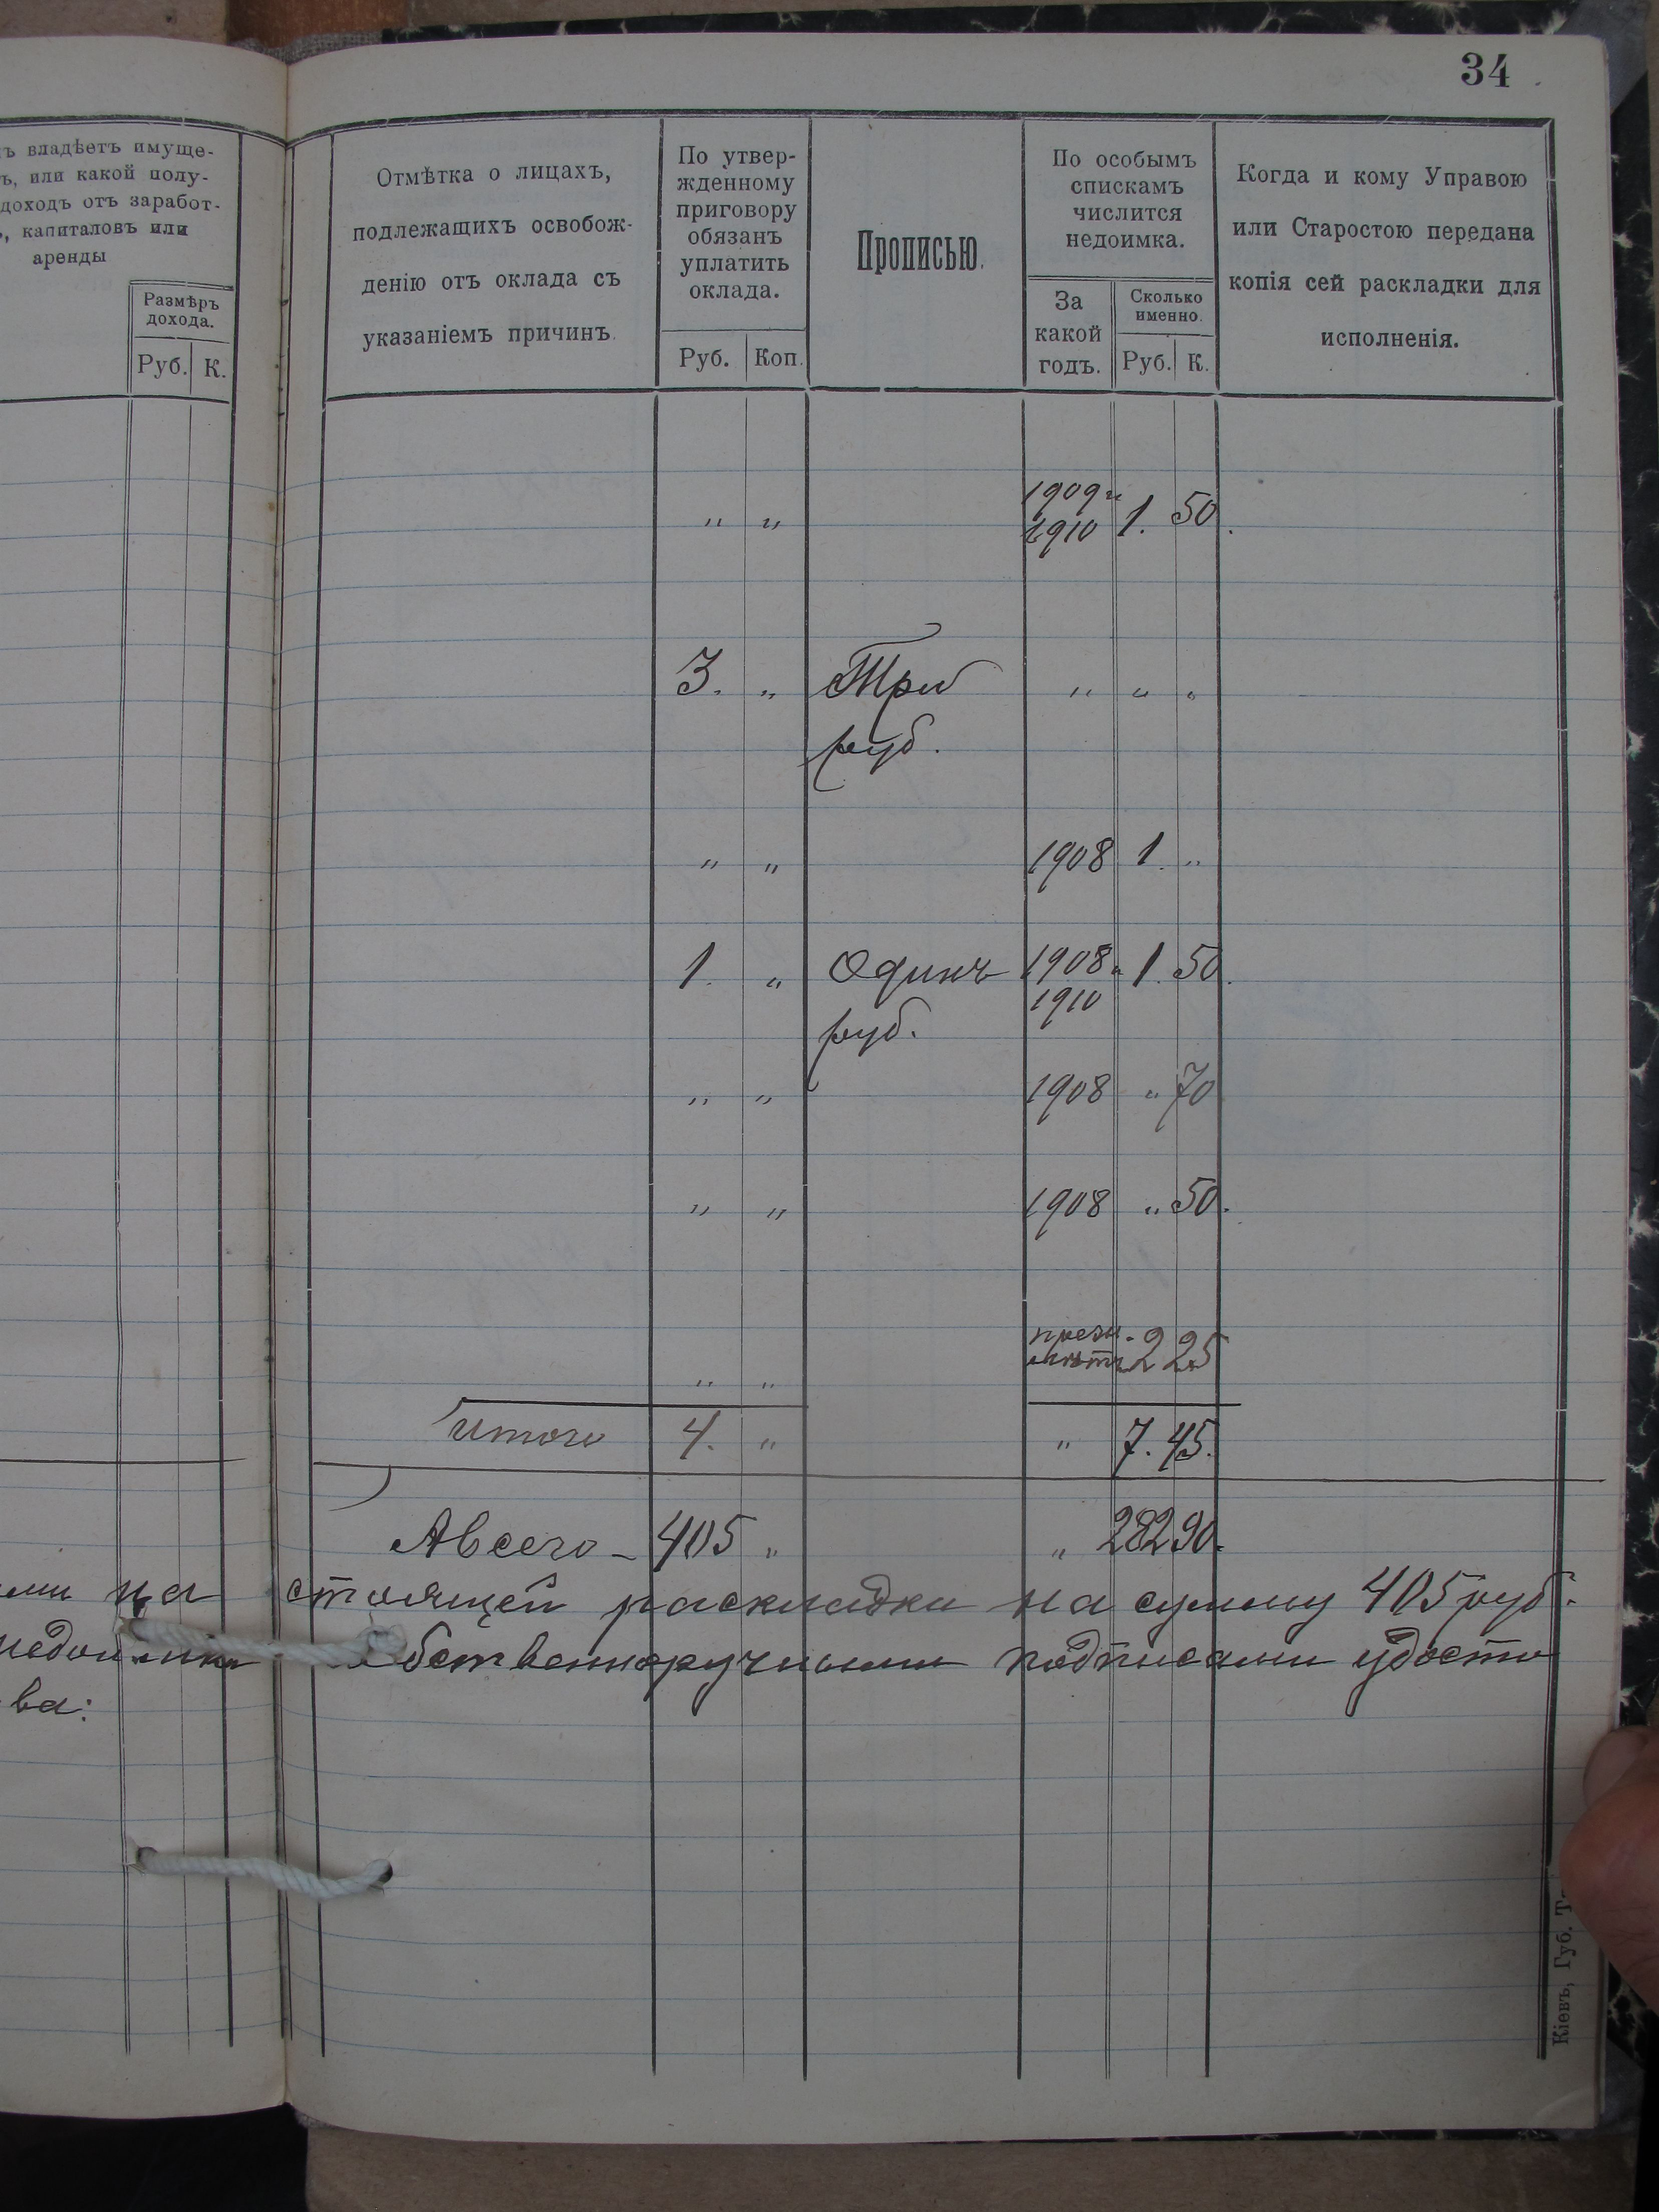 34
ъ владѣетъ имуще-
ъ, или какой полу-
доходъ отъ заработ-
, капиталовъ или
аренды
Размѣръ
дохода.
Руб. К.
Отмѣтка о лицахъ,
подлежащихъ освобож-
денію отъ оклада съ
указаніемъ причинъ.
По утвер-
жденному
приговору
обязанъ
уплатить
оклада.
Руб. Коп.
Прописью.
По особымъ
спискамъ
числится
недоимка.
За
какой
годъ.
Сколько
именно.
Руб. К.
Когда и кому Управою
или Старостою передана
копія сей раскладки для
исполненія.
" " 1909 и 1. 50.
1910
3. " Три " " "
руб.
" " 1908 1. "
1. " Одинъ 1908 и 1. 50.
руб. 1910
" " 1908 " 70
" " 1908 " 50.
" " 2 25
Итого 4. " " 7. 45.
А всего - 405 " " 282 90.
ми на стоящей раскладки на сумму 405 руб.
недоимки собственноручными подписами удосто
ва:
Кіевъ, Губ. Т